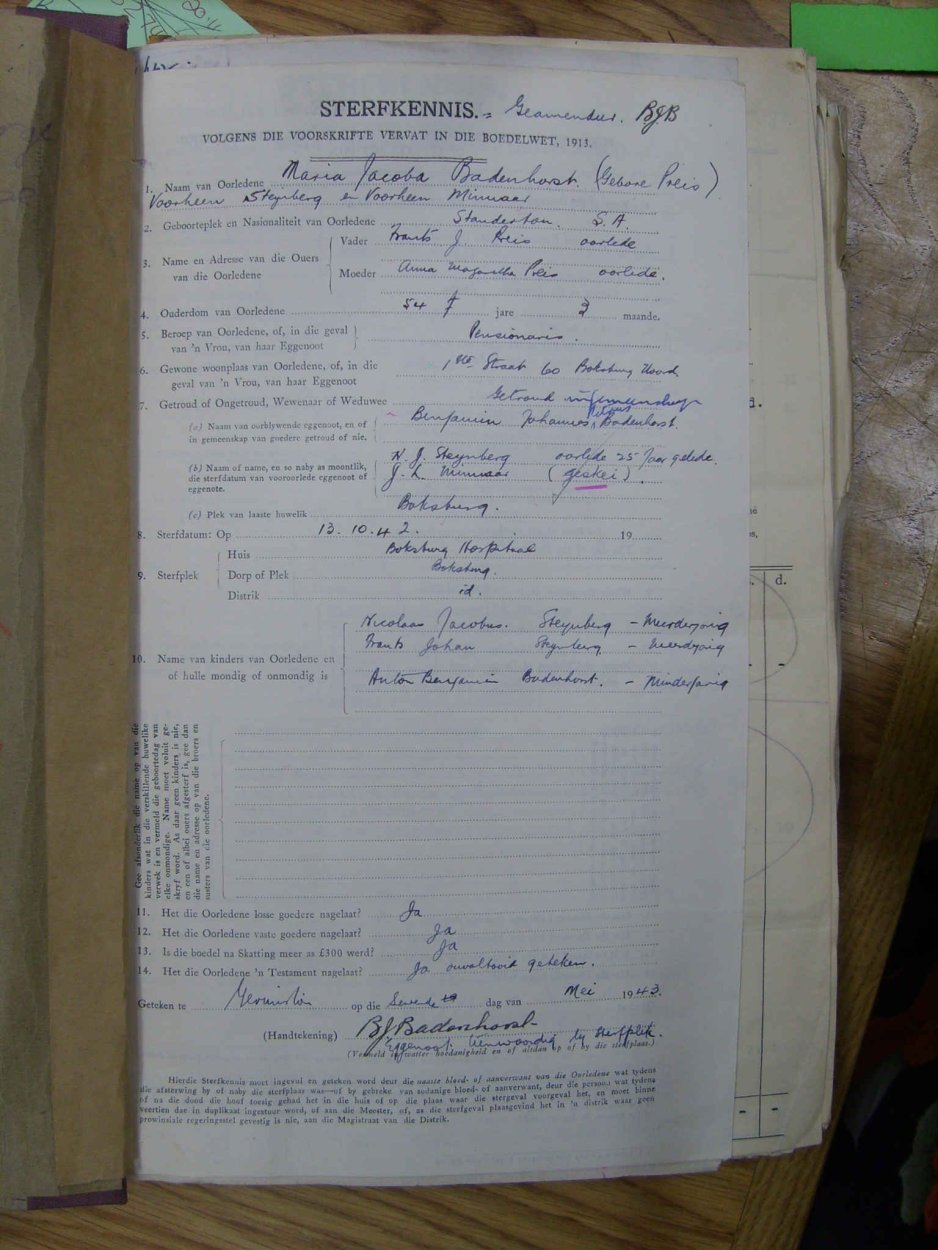 STERFKENNIS. = Geamendeer. BJB
VOLGENS DIE VOORSKRIFTE VERVAT IN DIE BOEDELWET, 1913.
1. Naam van Oorledene Maria Jacoba Badenhorst. (Gebore Preis)
Voorheen Steynberg en Voorheen Minnaar
2. Geboorteplek en Nasionaliteit van Oorledene Standerton. S.A.
3. Name en Adresse van die Ouers van die Oorledene
Vader Frants J. Preis oorlede
Moeder Anna Magaretha Preis oorlede.
4. Ouderdom van Oorledene 54 jare 3 maande.
5. Beroep van Oorledene, of, in die geval
van 'n Vrou, van haar Eggenoot Pensionaris.
6. Gewone woonplaas van Oorledene, of, in die 1ste Straat 60 Boksburg Noord.
geval van 'n Vrou, van haar Eggenoot
7. Getroud of Ongetroud, Wewenaar of Weduwee Getroud in gemeenskap
(a) Naam van oorblywende eggenoot, en of Benjamin Johannes Petrus Badenhorst.
in gemeenskap van goedere getroud of nie.
(b) Naam of name, en so naby as moontlik, N. J. Steynberg oorlede 25 Jaar gelede.
die sterfdatum van vooroorlede eggenoot of J. L. Minnaar (geskei).
eggenote.
(c) Plek van laaste huwelik Boksburg.
8. Sterfdatum: Op 13. 10. 42. 19
9. Sterfplek
Huis Boksburg Hospitaal
Dorp of Plek Boksburg.
Distrik id.
10. Name van kinders van Oorledene en
of hulle mondig of onmondig is
Nicolaas Jacobus. Steynberg - Meerderjarig
Frants Johan Steynberg - Meerderjarig
Anton Benjamin Badenhorst. - Minderjarig
Gee afsonderlik die name op van die
kinders wat in die verskillende huwelike
verwek is en vermeld die geboortedag van
elke onmondige. Name moet voluit ge-
skryf word. As daar geen kinders is nie,
en een of albei ouers afgesterf is, gee dan
die name en adresse op van die broers en
susters van die oorledene.
11. Het die Oorledene losse goedere nagelaat? Ja
12. Het die Oorledene vaste goedere nagelaat? Ja
13. Is die boedel na Skatting meer as £300 werd? Ja
14. Het die Oorledene 'n Testament nagelaat? Ja geteken.
Geteken te Germiston op die Sewende dag van Mei 1943.
(Handtekening) BJBadenhorst
Eggenoot. Teenwoordig by sterfplek.
(Vermeld in watter hoedanigheid en of altdan op of by die sterfplaas.)
Hierdie Sterfkennis moet ingevul en geteken word deur die naaste bloed- of aanverwant van die Oorledene wat tydens
die afsterwing by of naby die sterfplaas was—of by gebreke van sodanige bloed- of aanverwant, deur die persoon wat tydens
of na die dood die hoof toesig gehad het in die huis of op die plaas waar die sterfgeval voorgeval het, en moet binne
veertien dae in duplikaat ingestuur word, of aan die Meester, of, as die sterfgeval plaasgevind het in 'n distrik waar geen
provinsiale regeringsstel gevestig is nie, aan die Magistraat van die Distrik.
d.